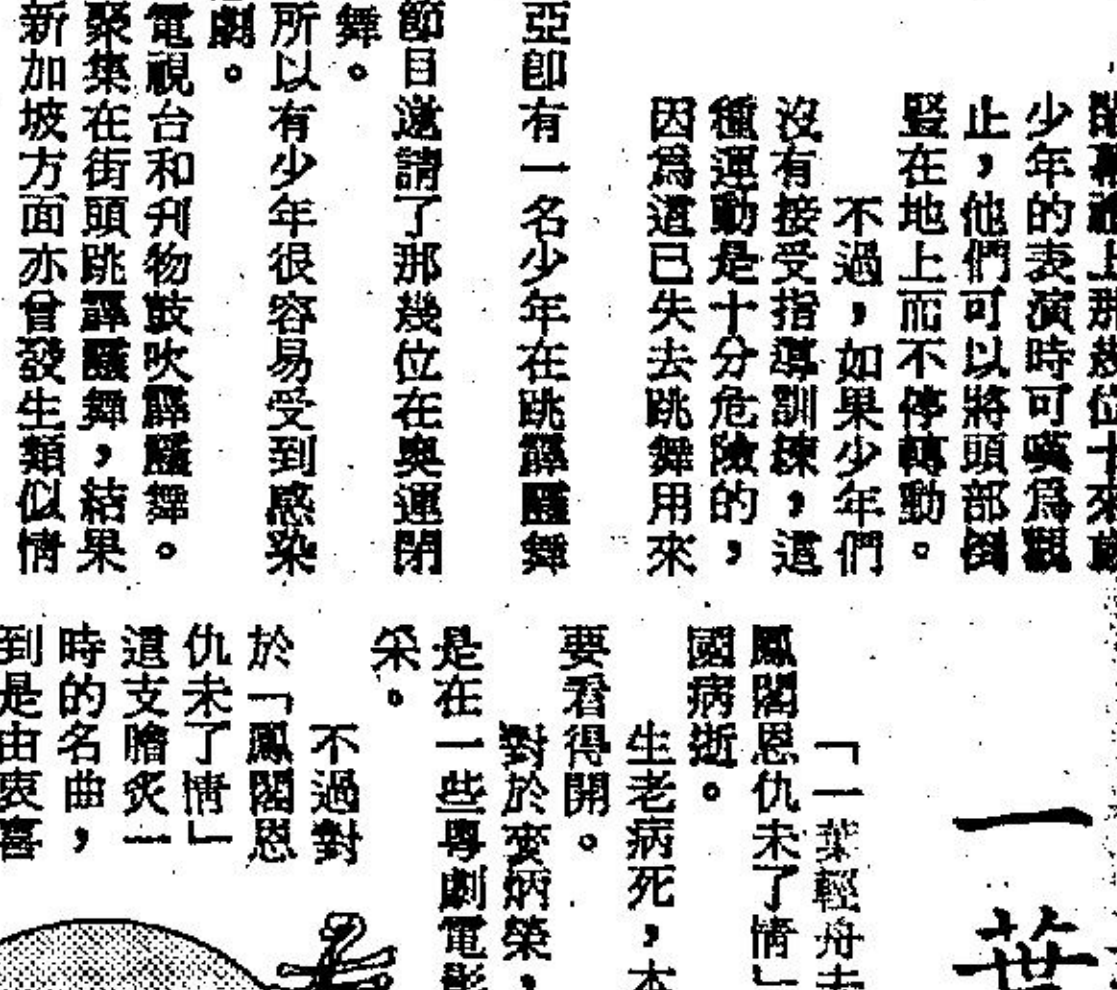 少年的表演時可嘆爲觀
止，他們可以將頭部倒
豎在地上而不停轉動。
不過，如果少年們
沒有接受指導訓練，這
種運動是十分危險的，
因爲這已失去跳舞用來
亞卽有一名少年在跳霹靂舞
節目邀請了那幾位在奧運閉
舞。
所以有少年很容易受到感染
劇。
電視台和刋物鼓吹霹靂舞。
聚集在街頭跳霹靂舞，結果
新加坡方面亦曾發生類似情
一葉
「一葉輕舟去
鳳閣恩仇未了情」
國病逝。
生老病死，本
要看得開。
對於麥炳榮，
是在一些粵劇電影
采。
不過對
於「鳳閣恩
仇未了情」
這支膾炙一
時的名曲，
到是由衷喜